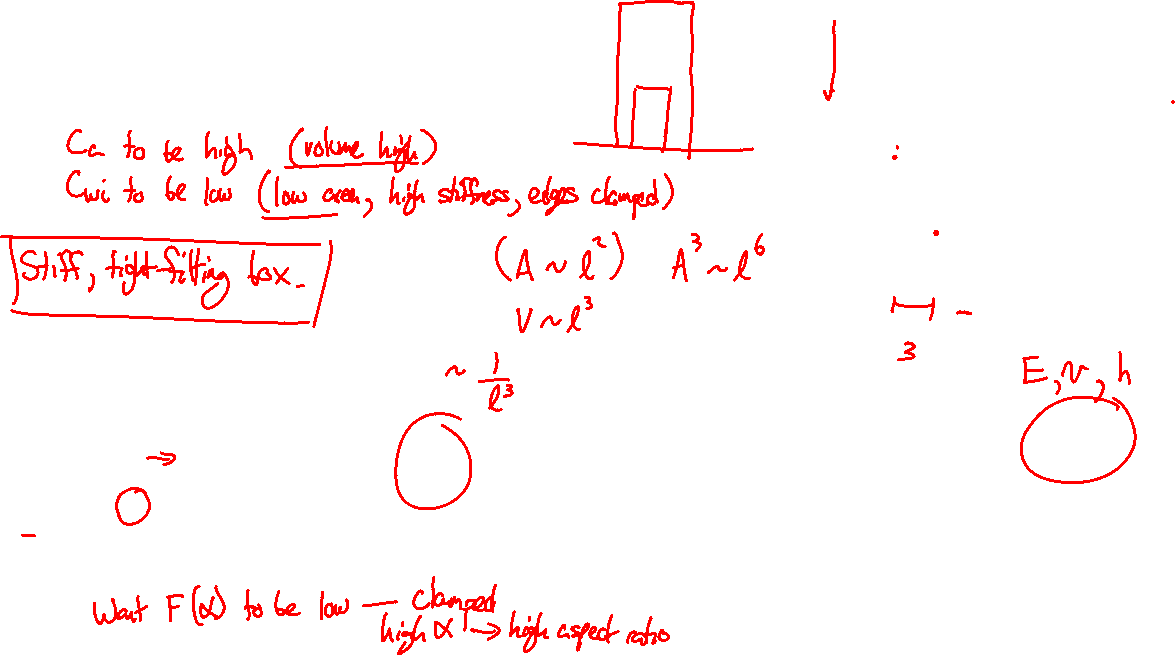 Ca to be high (volume high)
Cwi to be low (low area, high stiffness, edges clamped)
Stiff, tight-fitting box.
(A ~ l²) A³ ~ l⁶
V ~ l³
~ 1/l³
3
E, ν, h
Want F(α) to be low — clamped
high α → high aspect ratio